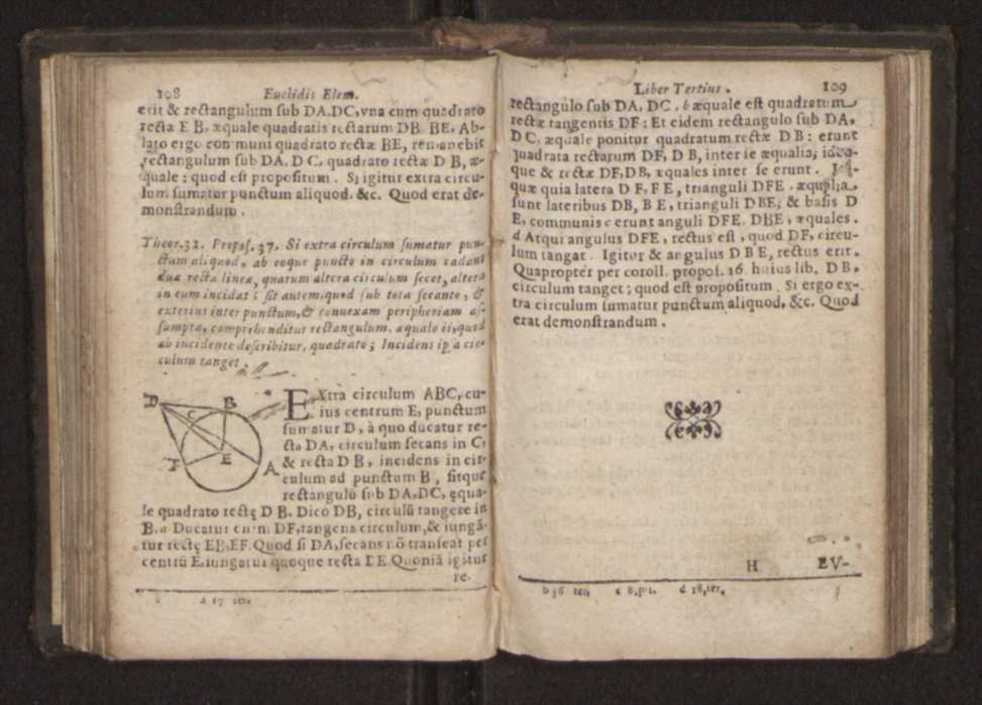 108 Euclidis Elem.
erit & rectangulum sub DA.DC,vna cum quadrato
recta E B, æquale quadratis rectarum DB BE. Ab-
lato ergo communi quadrato rectæ BE, remanebit
rectangulum sub DA. D C, quadrato rectæ D B, æ-
quale : quod est propositum . Si igitur extra circu-
lum sumatur punctum aliquod, &c. Quod erat de-
monstrandum .
Theor.32. Propos. 37. Si extra circulum sumatur pun-
ctum aliquod, ab eoque puncto in circulum cadant
duæ rectæ lineæ, quarum altera circulum secet, altera
in eum incidat ; sit autem,quod sub tota secante, &
exterius inter punctum,& conuexam peripheriam as-
sumpta, comprehenditur rectangulum, æquale ii,quod
ab incidente describitur, quadrato ; Incidens ipsa cir-
culum tanget .
D B C E F A
EXtra circulum ABC, cu-
ius centrum E, punctum
sumatur D, à quo ducatur re-
cta DA, circulum secans in C,
& recta D B, incidens in cir-
culum ad punctum B, sitque
rectangulū sub DA,DC, ęqua-
le quadrato rectę D B. Dico DB, circulū tangere in
B. a Ducatur enim DF,tangens circulum,& iungã-
tur rectę EB,EF.Quod si DA,secans nō transeat per
centrū E,iungatur quoque recta DE.Quoniã igitur
re-
a 17 ter.
Liber Tertius . 109
rectangulo sub DA, DC . b æquale est quadratum
rectæ tangentis DF : Et eidem rectangulo sub DA,
D C, æquale ponitur quadratum rectæ D B : erunt
quadrata rectarum DF, D B, inter se æqualia; ideo-
que & rectæ DF,DB, æquales inter se erunt .
quæ quia latera D F, F E, trianguli DFE . æqualia
sunt lateribus DB, B E, trianguli DBE; & basis D
E, communis c erunt anguli DFE. DBE, æquales.
d Atqui angulus DFE, rectus est, quod DF, circu-
lum tangat . Igitur & angulus D B E, rectus erit.
Quapropter per coroll. propos. 16. huius lib. D B,
circulum tanget ; quod est propositum . Si ergo ex-
tra circulum sumatur punctum aliquod, &c. Quod
erat demonstrandum .
H EV-
b 36 ter. c 8.pri. d 18,ter.